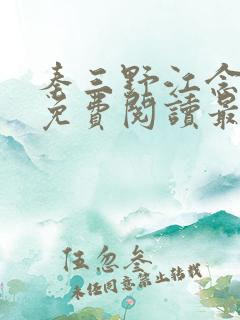 秦三野江念
免費閱讀最
伍忽叁
未经同意禁止转载